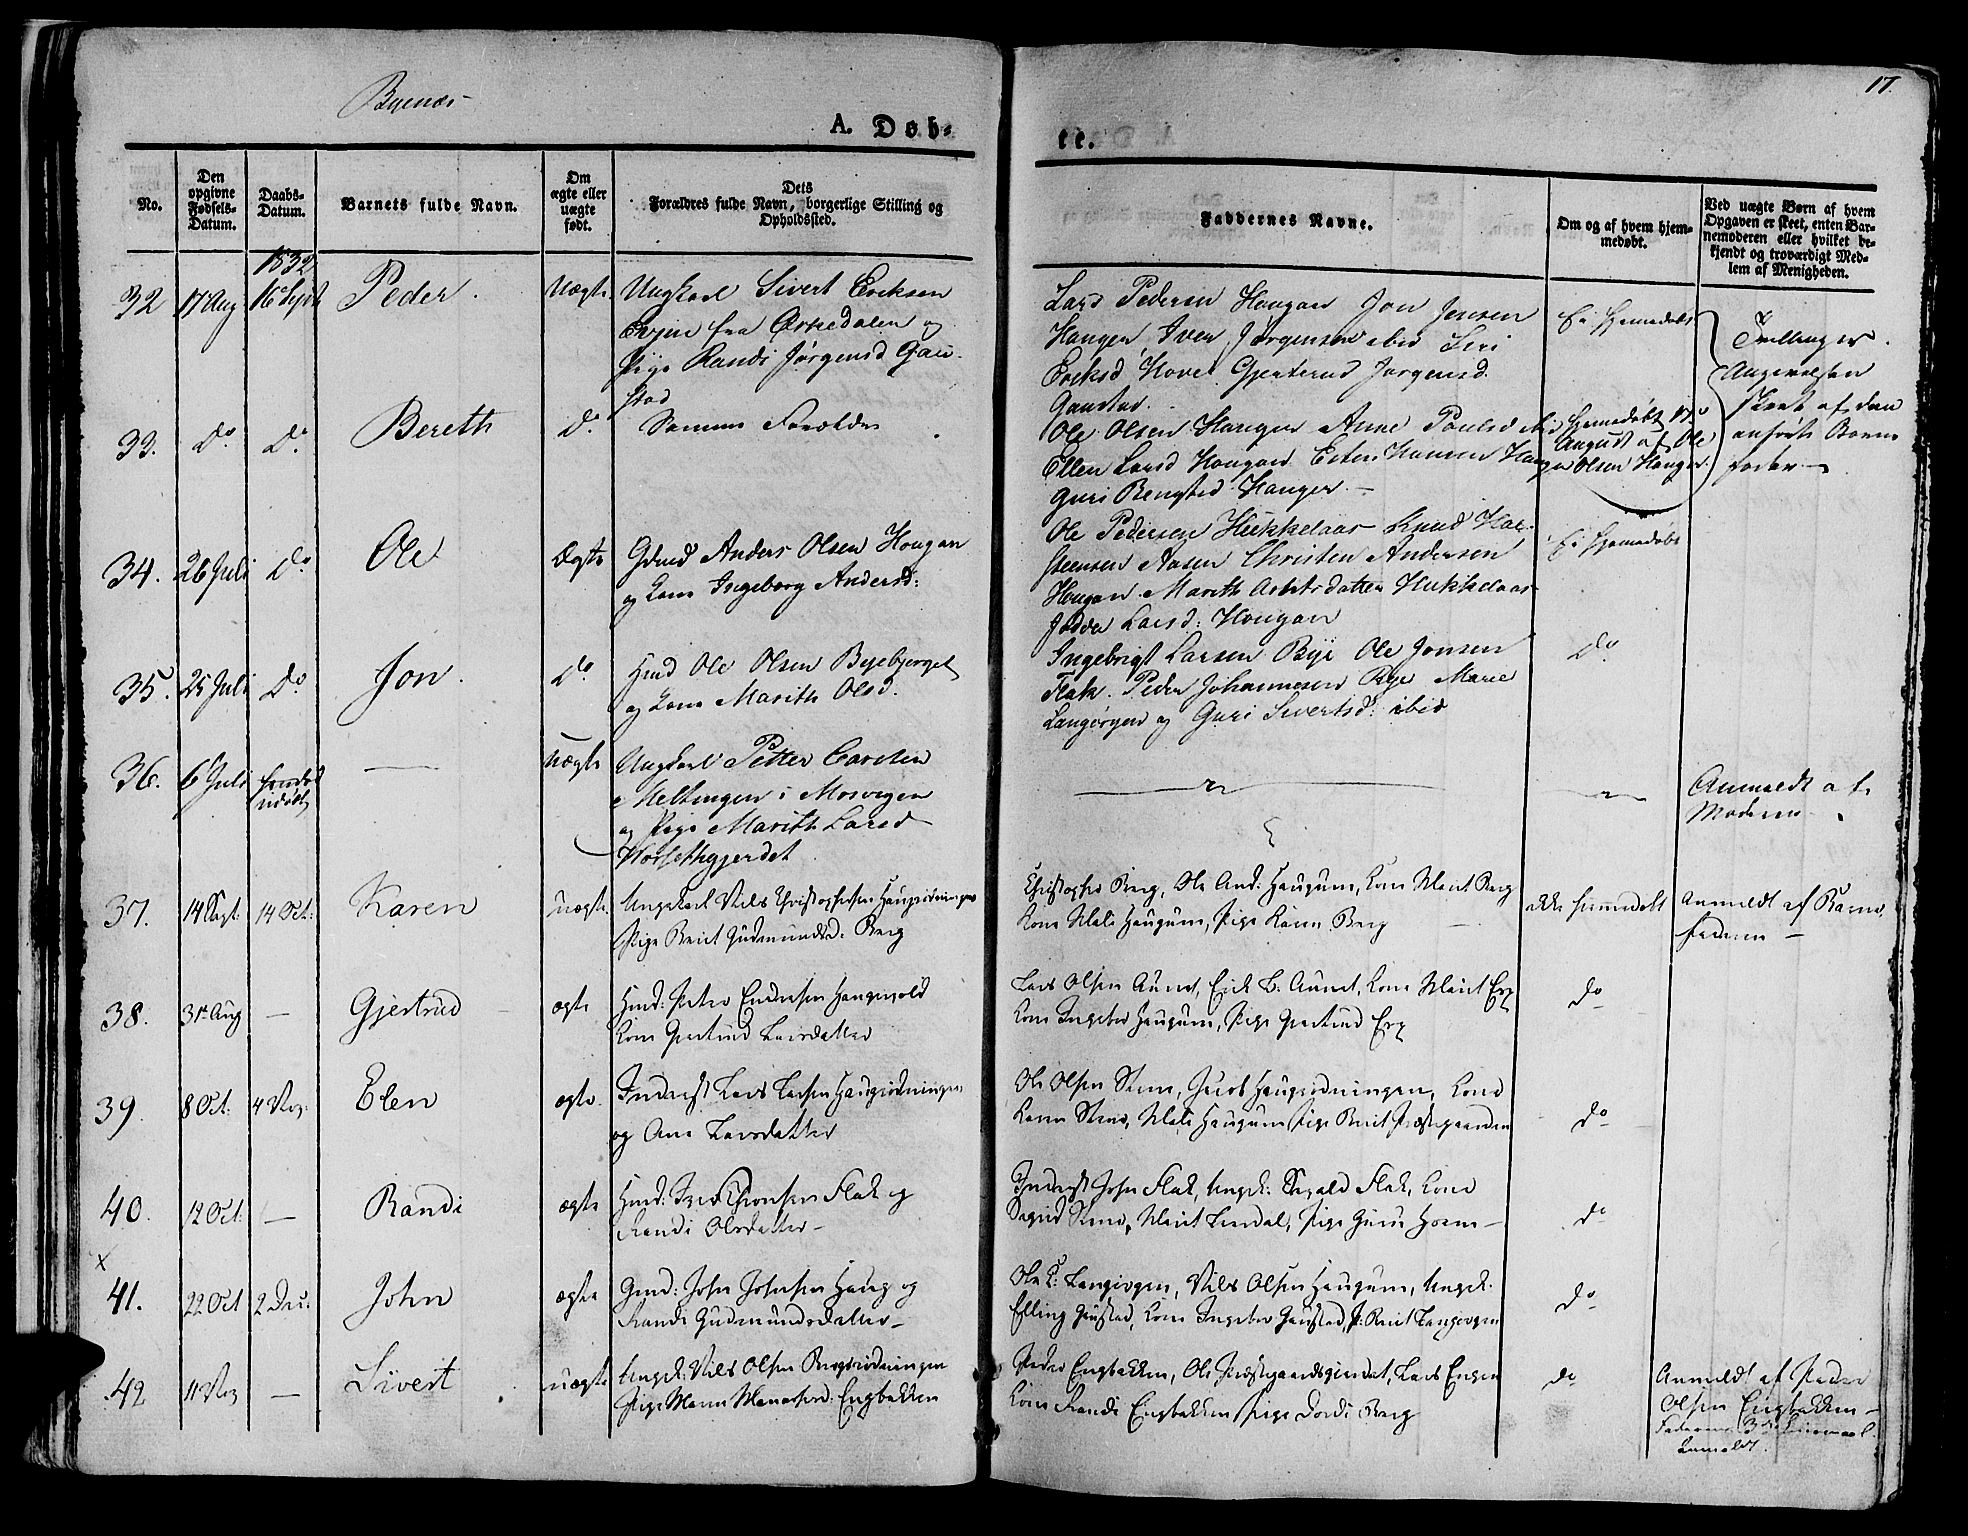 Byenæs
17.
A. Døb=
te.
No.
Den opgivne Fødsels-Datum.
Daabs-Datum.
Barnets fulde Navn.
Om ægte eller uægte født.
Dets Forældres fulde Navn, borgerlige Stilling og Opholdssted.
Faddernes Navne.
Om og af hvem hjemmedøbt.
Ved uægte Børn af hvem Opgaven er skeet, enten Barnemoderen eller hvilket bekjendt og troværdigt Medlem af Menigheden.
1832
32 17 Aug 16 Sept Peder. Uægte Ungkarl Sivert Eriksen
Evjen fra Ørkedalen og
Pige Randi Jørgensd Gau-
stad
Lars Pedersen Hougan Jon Jensen
Hangen, Iver Jørgensen ibid Siri
Eriksd Hovel Gjertrud Jørgensd.
Gaustad.
Ei Hjemedøbt
Tvillinger.
Angivelsen
skeet af den
anførte Barne
fader.
33. Do Do Bereth Do Samme Forældre
Ole Olsen Hangen Anne Paulsd ibid
Ellen Larsd Hougan Esten Hansen Hangen
Guri Bengtsd Hanger.
Hjemedøbt 17de
August af Ole
Olsen Hanger.
34. 26 Juli Do Ole Ægte Gdmd Anders Olsen Hougan
og Kone Ingeborg Andersd:
Ole Pedersen Hukkelaas Knud Hal-
steensen Aasen Christen Andersen
Hougan Marith Datter Hukkelaas
Larsd: Hougan
Ei Hjemedøbt
35. 25 Juli Do Jon. Do Hmd Ole Olsen Byebjerget
og Kone Marith Olsd.
Ingebrigt Larsen Bye Ole Jonsen
Flak. Peder Johannesen Rye Marie
Langørgen og Guri Sivertsd: ibid
Do
36. 6 Juli — Uægte Ungkarl Petter Carsten
Meltingen i Mosvigen
og Pige Marith Larsd
Horsethgjerdet
Anmeldt af
Moderen
37. 14 Sept. 14 Oct: Karen uægte Ungekarl Nils Christophersen Haugrødningen
Pige Berit Gudmundsd: Berg
Christopher Berg, Ole And: Haugum, Kone Marit Berg
Kone Mali Haugum, Pige Karen Berg
ikke hjemmedøbt
Anmeldt af Barne
faderen —
38. 31 Aug — Gjertrud ægte Hmd: Peter Endresen Haugvold
Kone Gjertrud Larsdatter
Lars Olsen Aunet, Erik B: Aunet, Kone Marit
Kone Ingebor Haugum, Pige Gjertrud
Do
39. 8 Oct: 4 Nov: Elen ægte Inderst Lars Larsen Haugrødningen
og Ane Larsdatter
Ole Olsen Steene, Jacob Haugrødningen, Kone
Karen Steene, Mali Haugum Pige Berit Præstegaarden
Do
40. 12 Oct: — Randi ægte Hmd: Flak og
Randi Olsdatter —
Inderst John Flak, Ungk: Flak, Kone
Steene, Marit Pige Guru —
Do
x
41. 22 Oct 2 Dec: John ægte Gmd: John Johnsen Haug og
Randi Gudmundsdatter —
Ole Langørgen, Nils Olsen Haugum, Ungk:
Elling Gaustad, Kone Ingebor Gaustad, P: Berit Langørgen
Do
42 11 Nov — Sivert uægte Ungk: Nils Olsen Bergsrødningen
Pige Engbakken
Peder Engbakken, Ole Præstgaardsgjerdet, Lars Engen
Kone Randi Engbakken Pige Dordi Berg
Do
Anmeldt af Peder
Olsen Engbakken —
Faderens 3die Leiermaal.